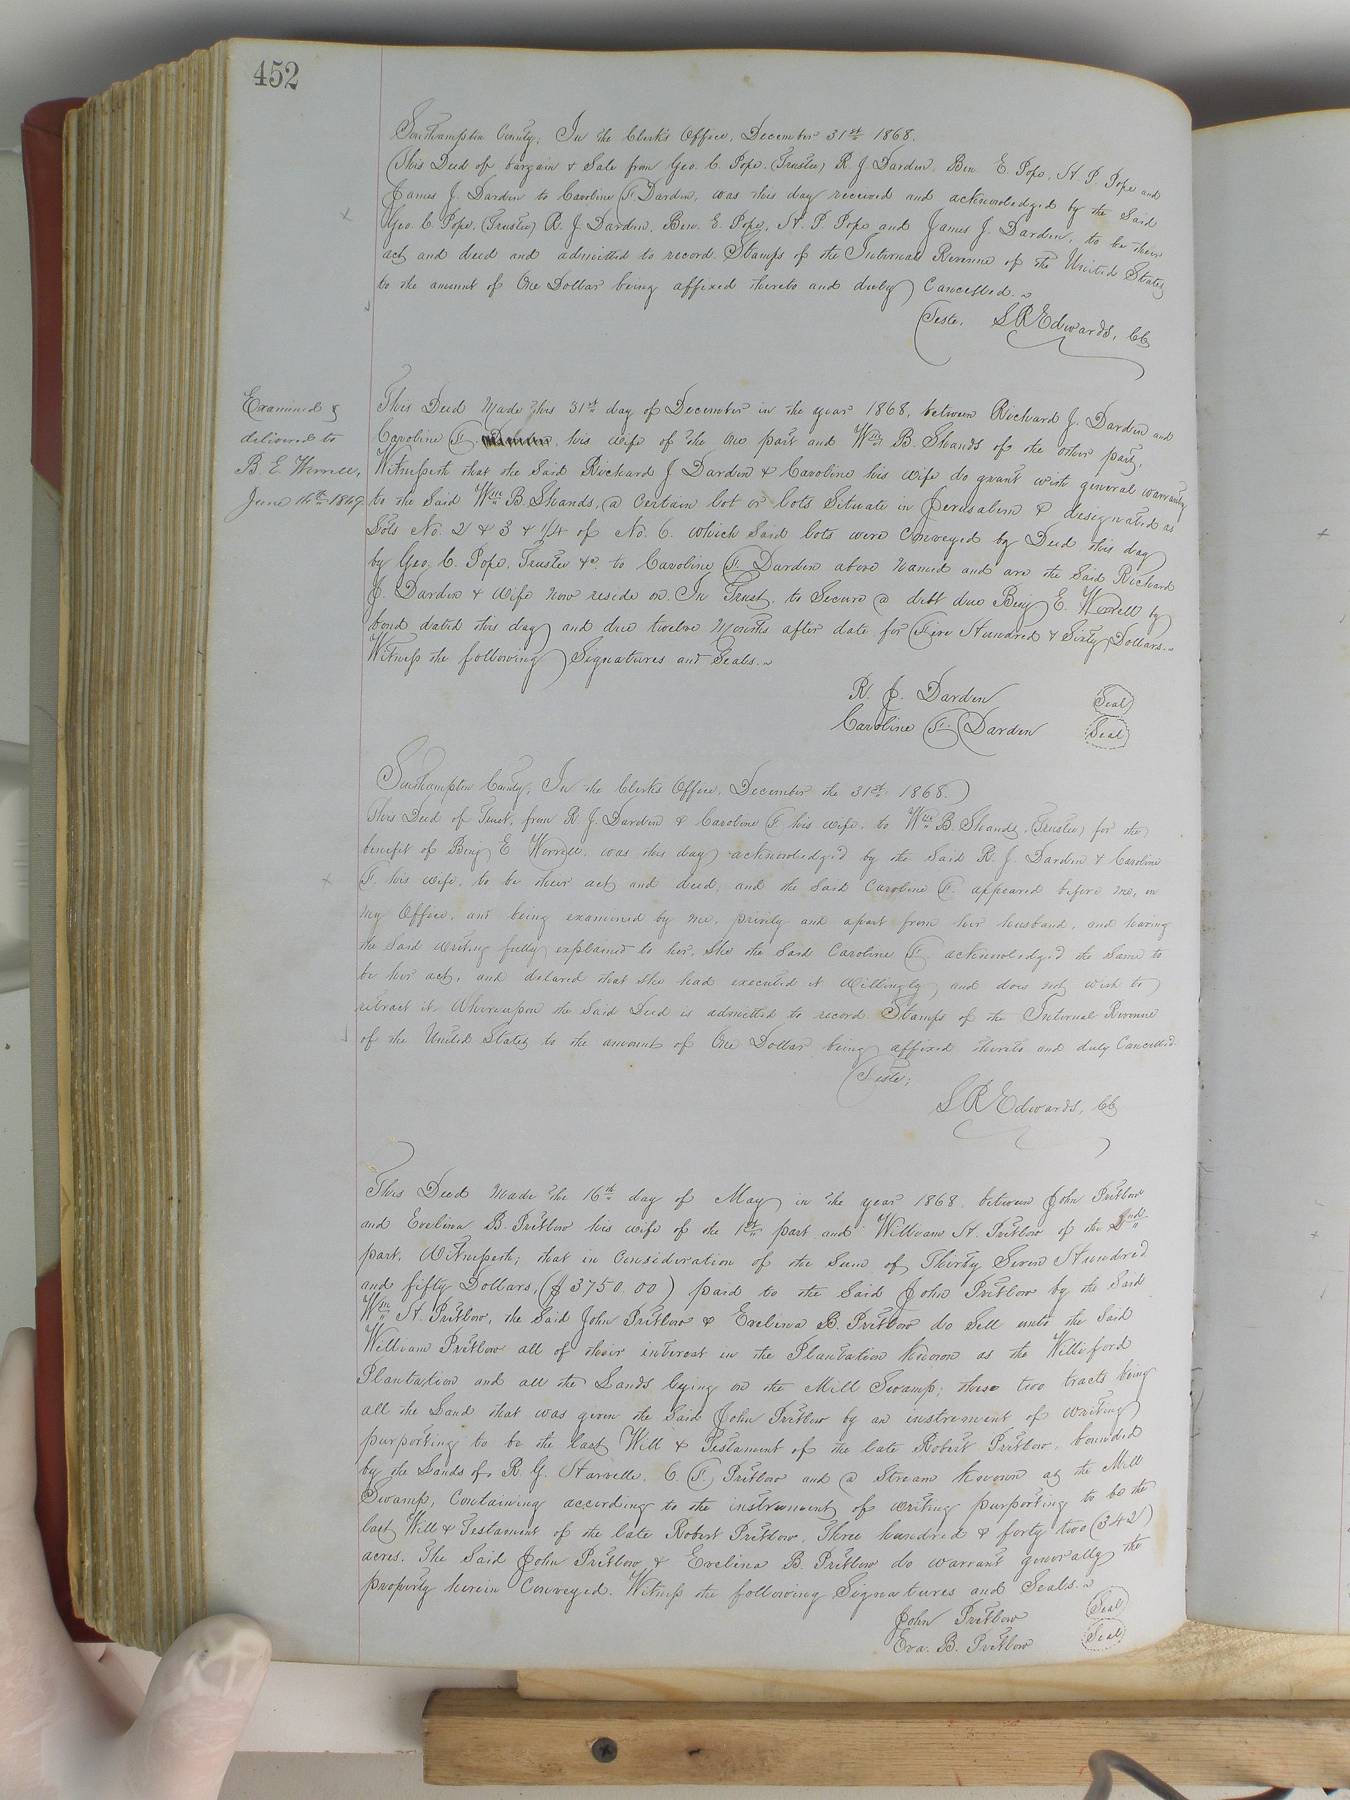 452
Southampton County, In the Clerk's Office, December 31st 1868.
This Deed of bargain & Sale from Geo. C. Pope, (Trustee) R. J. Darden, Ben. E. Pope, H. P. Pope and
James J. Darden to Caroline F. Darden, was this day received and acknowledged by the Said
Geo. C. Pope, (Trustee) R. J. Darden, Ben. E. Pope, H. P. Pope and James J. Darden, to be their
act and deed and admitted to record. Stamps of the Internal Revenue of the United States
to the amount of One Dollar being affixed thereto and duly Cancelled.
Teste. S R Edwards, CC
Examined &
delivered to
B. E. Worrell,
June 16th 1869
This Deed Made this 31st day of December in the year 1868, between Richard J. Darden and
Caroline F. his wife of the one part and Wm B. Shands of the other part,
Witnesseth that the Said Richard J Darden & Caroline his wife do grant with general warranty
to the Said Wm B. Shands, a Certain lot or lots Situate in Jerusalem & designated as
Lots No. 2 & 3 & 1/4 of No. 6. which Said lots were Conveyed by Deed this day
by Geo. C. Pope, Trustee &c. to Caroline F. Darden above named and are the Said Richard
J. Darden & wife now reside on. In Trust, to Secure a debt due Benj E. Worrell by
bond dated this day and due twelve Months after date for Five Hundred & Sixty Dollars.
Witness the following Signatures and Seals.
R. J. Darden (Seal)
Caroline F. Darden (Seal)
Southampton County, In the Clerk's Office, December the 31st 1868.
This Deed of Trust, from R. J. Darden & Caroline F. his wife, to Wm B. Shands, (Trustee) for the
benefit of Benj E Worrell, was this day acknowledged by the Said R. J. Darden & Caroline
F. his wife, to be their act and deed, and the Said Caroline F. appeared before me, in
my Office, and being examined by me, privily and apart from her husband, and having
the Said writing fully explained to her, She the Said Caroline F. acknowledged the Same to
be her act, and delared that She had executed it willingly and does not wish to
retract it. Whereupon the Said Deed is admitted to record. Stamps of the Internal Revenue
of the United States to the amount of One Dollar being affixed thereto and duly Cancelled.
Teste;
S R Edwards, CC
This Deed Made the 16th day of May in the year 1868 between John Pretlow
and Evelina B. Pretlow his wife of the 1st part and William H. Pretlow of the 2nd
part, Witnesseth; that in Consideration of the Sum of Thirty Seven Hundred
and fifty Dollars, ($3750.00) paid to the Said John Pretlow by the Said
Wm H. Pretlow, the Said John Pretlow & Evelina B. Pretlow do Sell unto the Said
William Pretlow all of their interest in the Plantation known as the Williford
Plantation and all the Lands lying on the Mill Swamp; these two tracts being
all the Land that was given the Said John Pretlow by an instrument of writing
purporting to be the last Will & Testament of the late Robert Pretlow, bounded
by the Lands of R. G. Harvelle, C. F. Pretlow and a Stream known as the Mill
Swamp, Containing according to the instrument of writing purporting to be the
last Will & Testament of the late Robert Pretlow, Three hundred & forty two (342)
acres. The Said John Pretlow & Evelina B. Pretlow do warrant generally the
property herein Conveyed. Witness the following Signatures and Seals.
John Pretlow (Seal)
Eva. B. Pretlow (Seal)